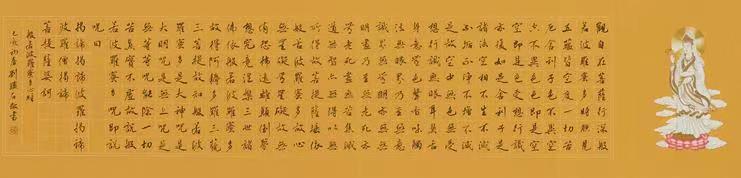 觀自在菩薩行深般
若波羅蜜多時照見
五蘊皆空度一切苦
厄舍利子色不異空
空不異色色即是空
空即是色受想行識
亦復如是舍利子是
諸法空相不生不滅
不垢不淨不增不減
是故空中無色無受
想行識無眼耳鼻舌
身意無色聲香味觸
法無眼界乃至無意
識界無無明亦無無
明盡乃至無老死亦
無老死盡無苦集滅
道無智亦無得以無
所得故菩提薩埵依
般若波羅蜜多故心
無罣礙無罣礙故無
有恐怖遠離顛倒夢
想究竟涅槃三世諸
佛依般若波羅蜜多
故得阿耨多羅三藐
三菩提故知般若波
羅蜜多是大神咒是
大明咒是無上咒是
無等等咒能除一切
苦真實不虛故說般
若波羅蜜多咒即說
咒曰
揭諦揭諦波羅揭諦
波羅僧揭諦
菩提薩婆訶
般若波羅蜜多心經
初春劉敬書